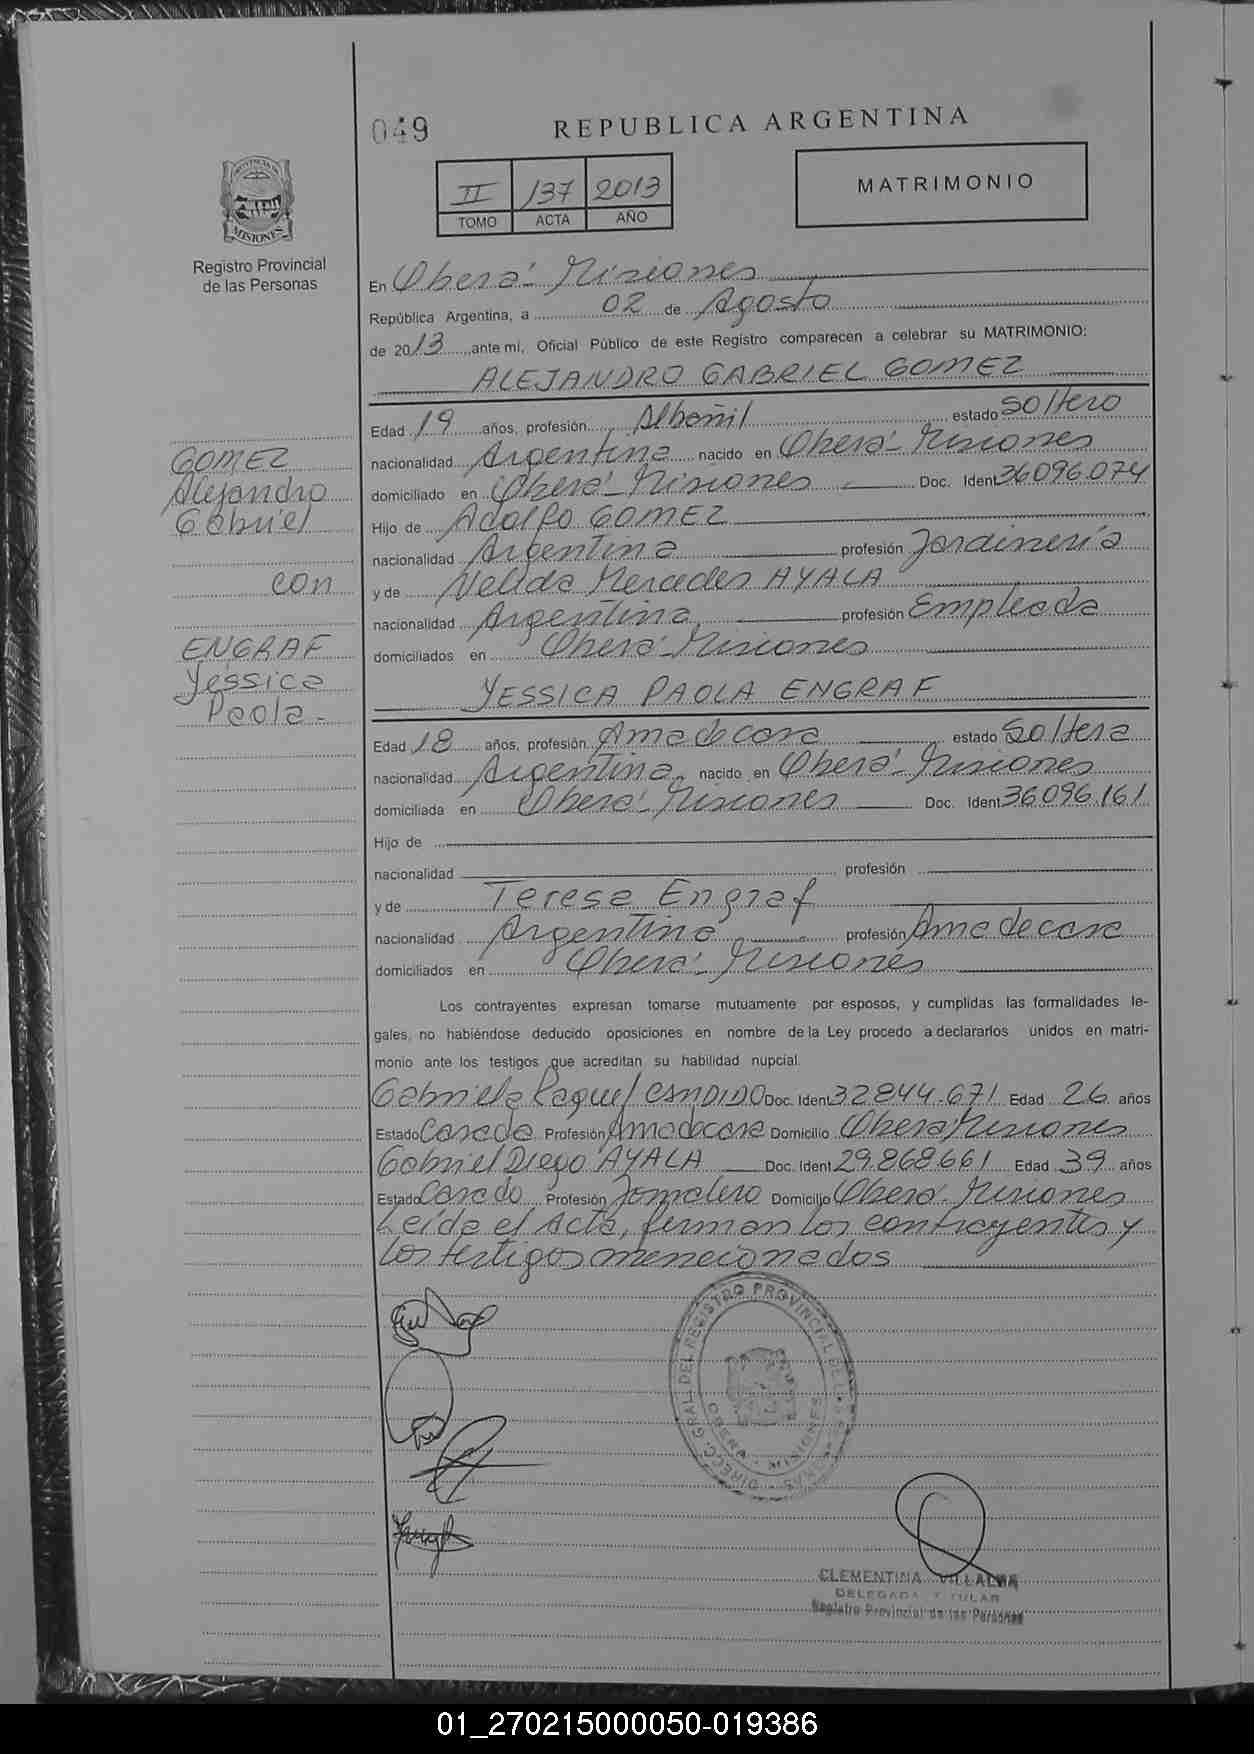 049
REPUBLICA ARGENTINA
II 137 2013
TOMO ACTA AÑO
MATRIMONIO
MISIONES
Registro Provincial
de las Personas
En Oberá - Misiones
República Argentina, a 02 de Agosto
de 2013, ante mi, Oficial Público de este Registro comparecen a celebrar su MATRIMONIO:
ALEJANDRO GABRIEL GOMEZ
Edad 19 años, profesión Albañil estado soltero
nacionalidad Argentina nacido en Oberá - Misiones
domiciliado en Oberá - Misiones Doc. Ident 36096.074
Hijo de Adolfo GOMEZ
nacionalidad Argentina profesión Jardinería
y de Nelida Mercedes AYALA
nacionalidad Argentina profesión Empleada
domiciliados en Oberá - Misiones
YESSICA PAOLA ENGRAF
Edad 18 años, profesión Ama de casa estado Soltera
nacionalidad Argentina nacido en Oberá - Misiones
domiciliada en Oberá - Misiones Doc. Ident 36096.161
Hijo de
nacionalidad profesión
y de Teresa Engraf
nacionalidad Argentina profesión Ama de casa
domiciliados en Oberá - Misiones
GOMEZ
Alejandro
Gabriel
con
ENGRAF
Yessica
Paola -
Los contrayentes expresan tomarse mutuamente por esposos, y cumplidas las formalidades le-
gales, no habiéndose deducido oposiciones en nombre de la Ley procedo a declararlos unidos en matri-
monio ante los testigos que acreditan su habilidad nupcial.
Gabriela Raquel CANDIDO Doc. Iden 32844.671 Edad 26 años
Estado Casada Profesión Ama de casa Domicilio Oberá Misiones
Gabriel Diego AYALA Doc. Ident 29.868661 Edad 39 años
Estado Casado Profesión Jornalero Domicilio Oberá - Misiones
Leída el Acta, firman los contrayentes y
los testigos menecionados
DIRECC. GRAL DEL REGISTRO PROVINCIAL DE LAS PERSONAS
OBERA - MISIONES
CLEMENTINA VILLALBA
DELEGADA TITULAR
Registro Provincial de las Personas
01_270215000050-019386